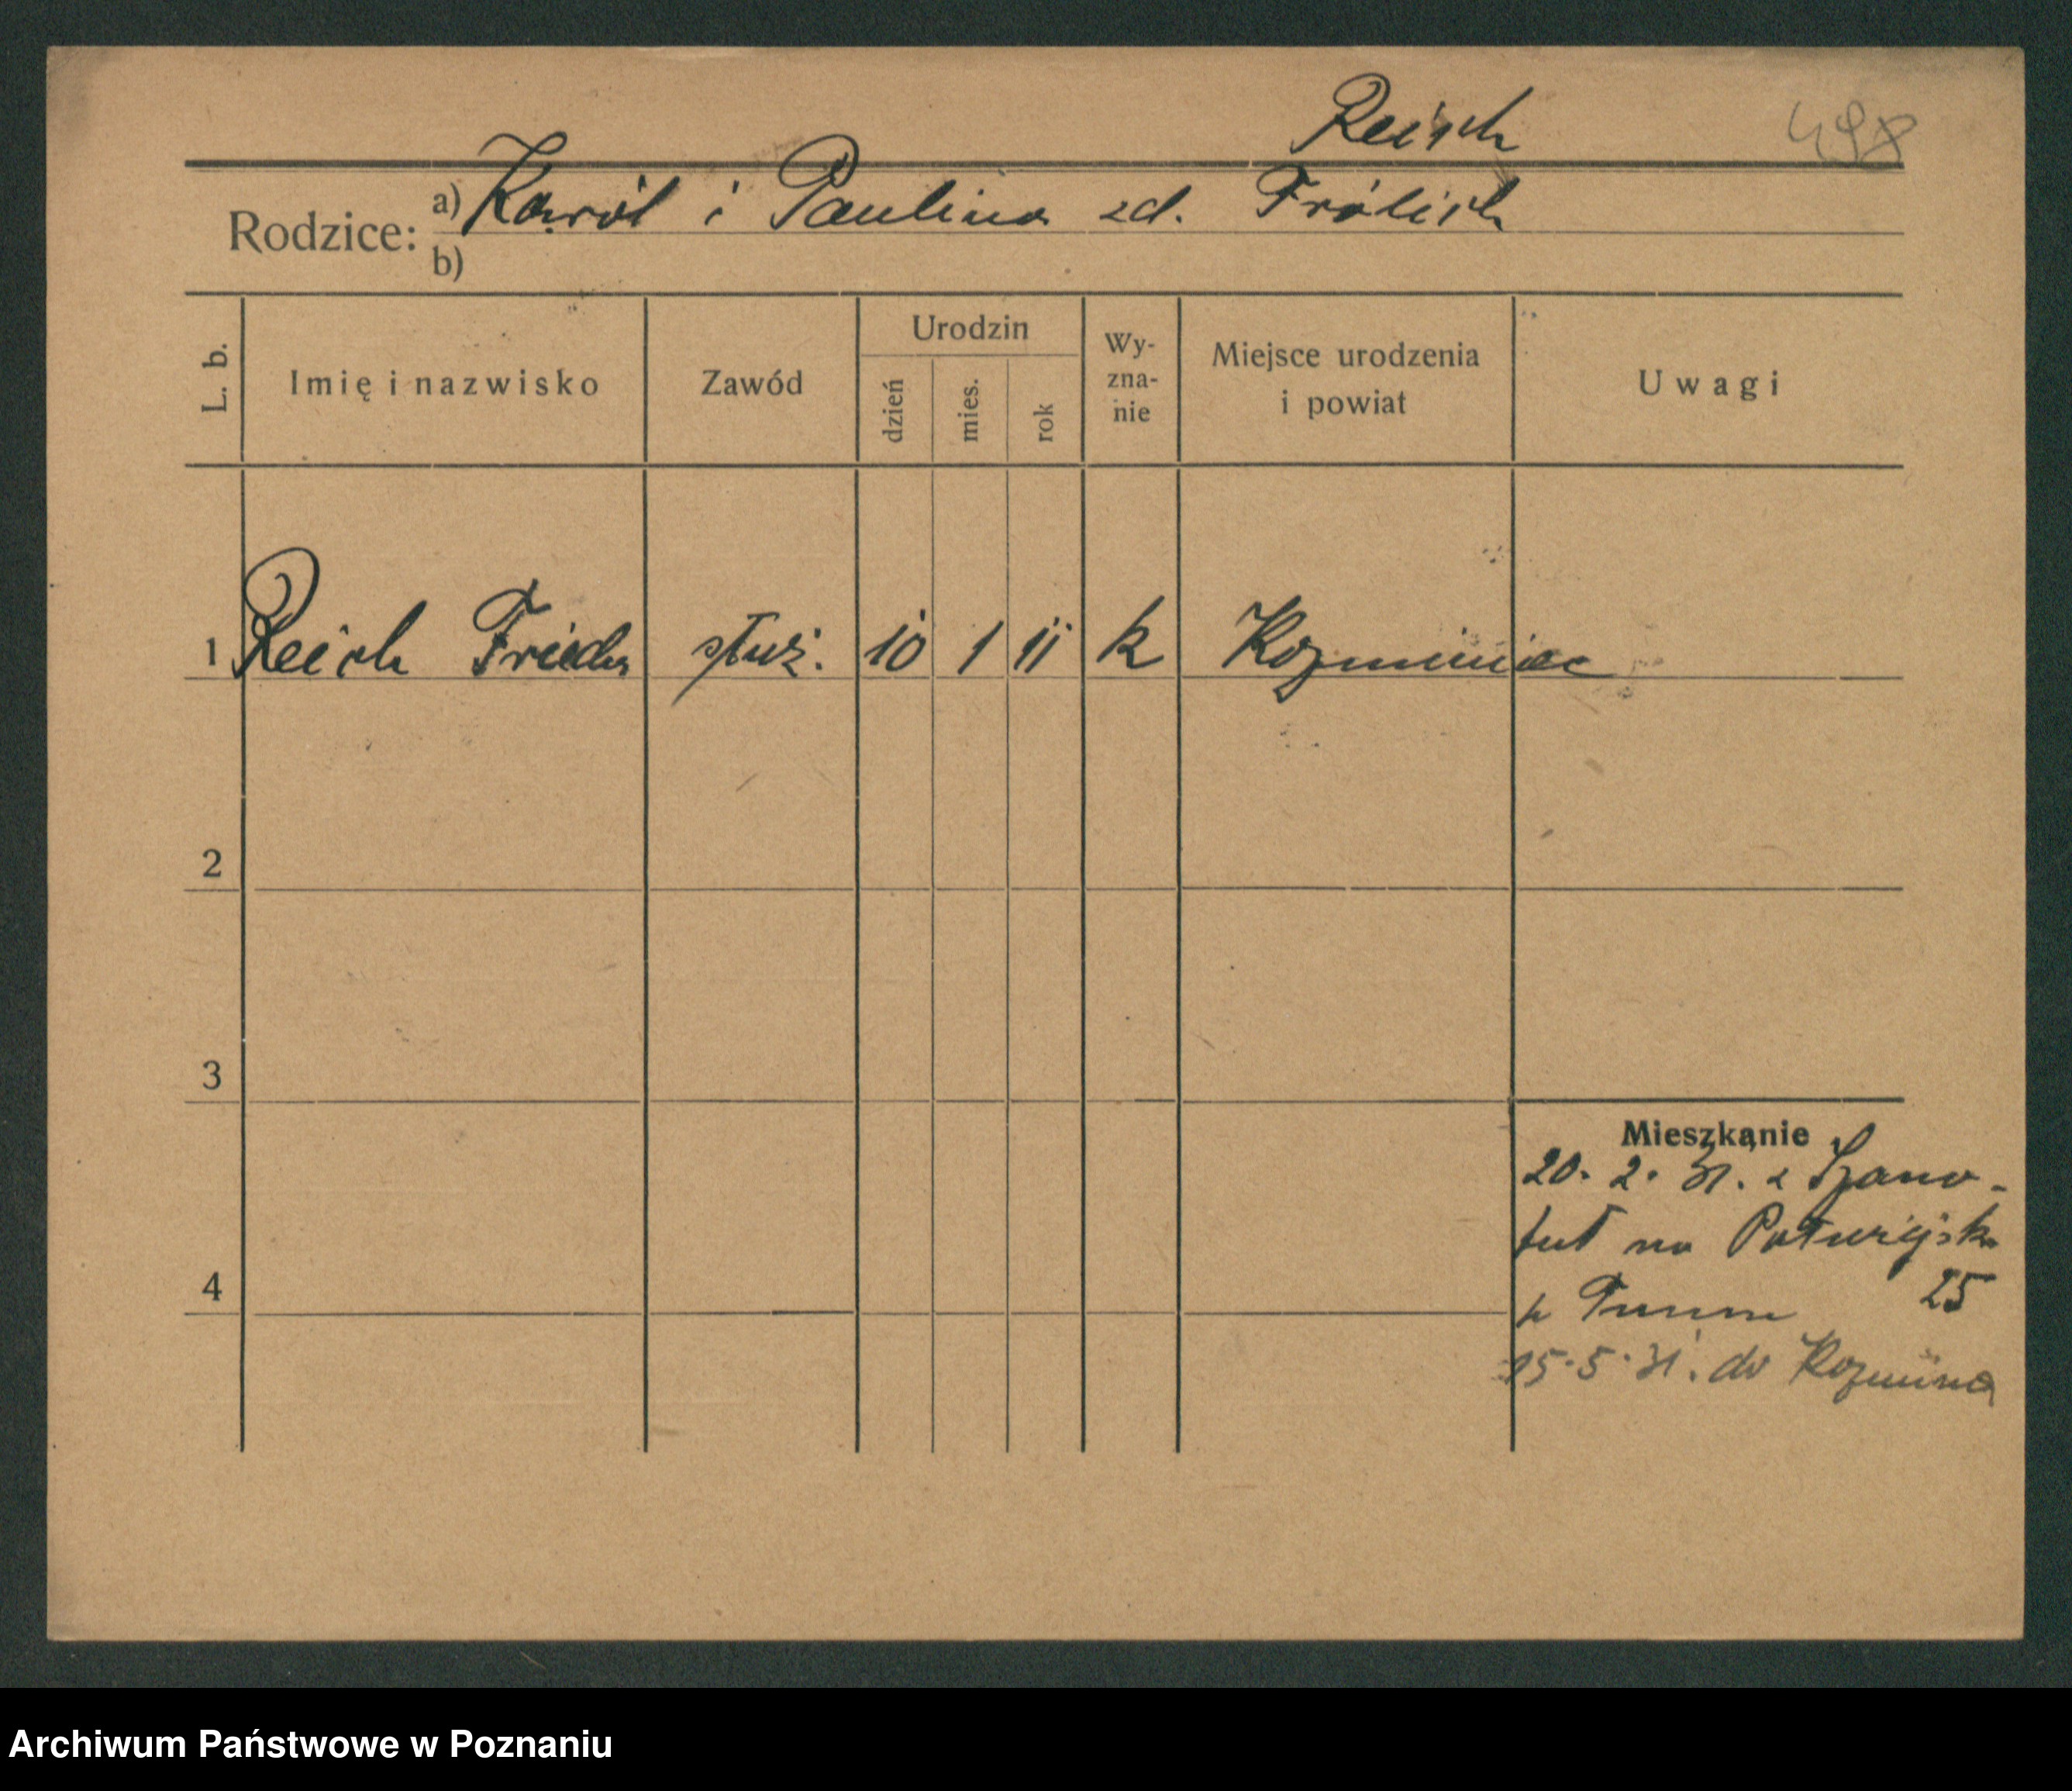 Reich
498
Rodzice: a) Karól i Paulina zd. Frölich
b)
L. b. Imię i nazwisko Zawód Urodzin dzień mies. rok Wy-zna-nie Miejsce urodzenia i powiat Uwagi
1 Reich Frieda służ. 10 1 11 k Kozminiec
2
3
Mieszkanie
20. 2. 31. z Szamo-
tuł na
4 25
p
15. 5. 31. do Kozmina
Archiwum Państwowe w Poznaniu